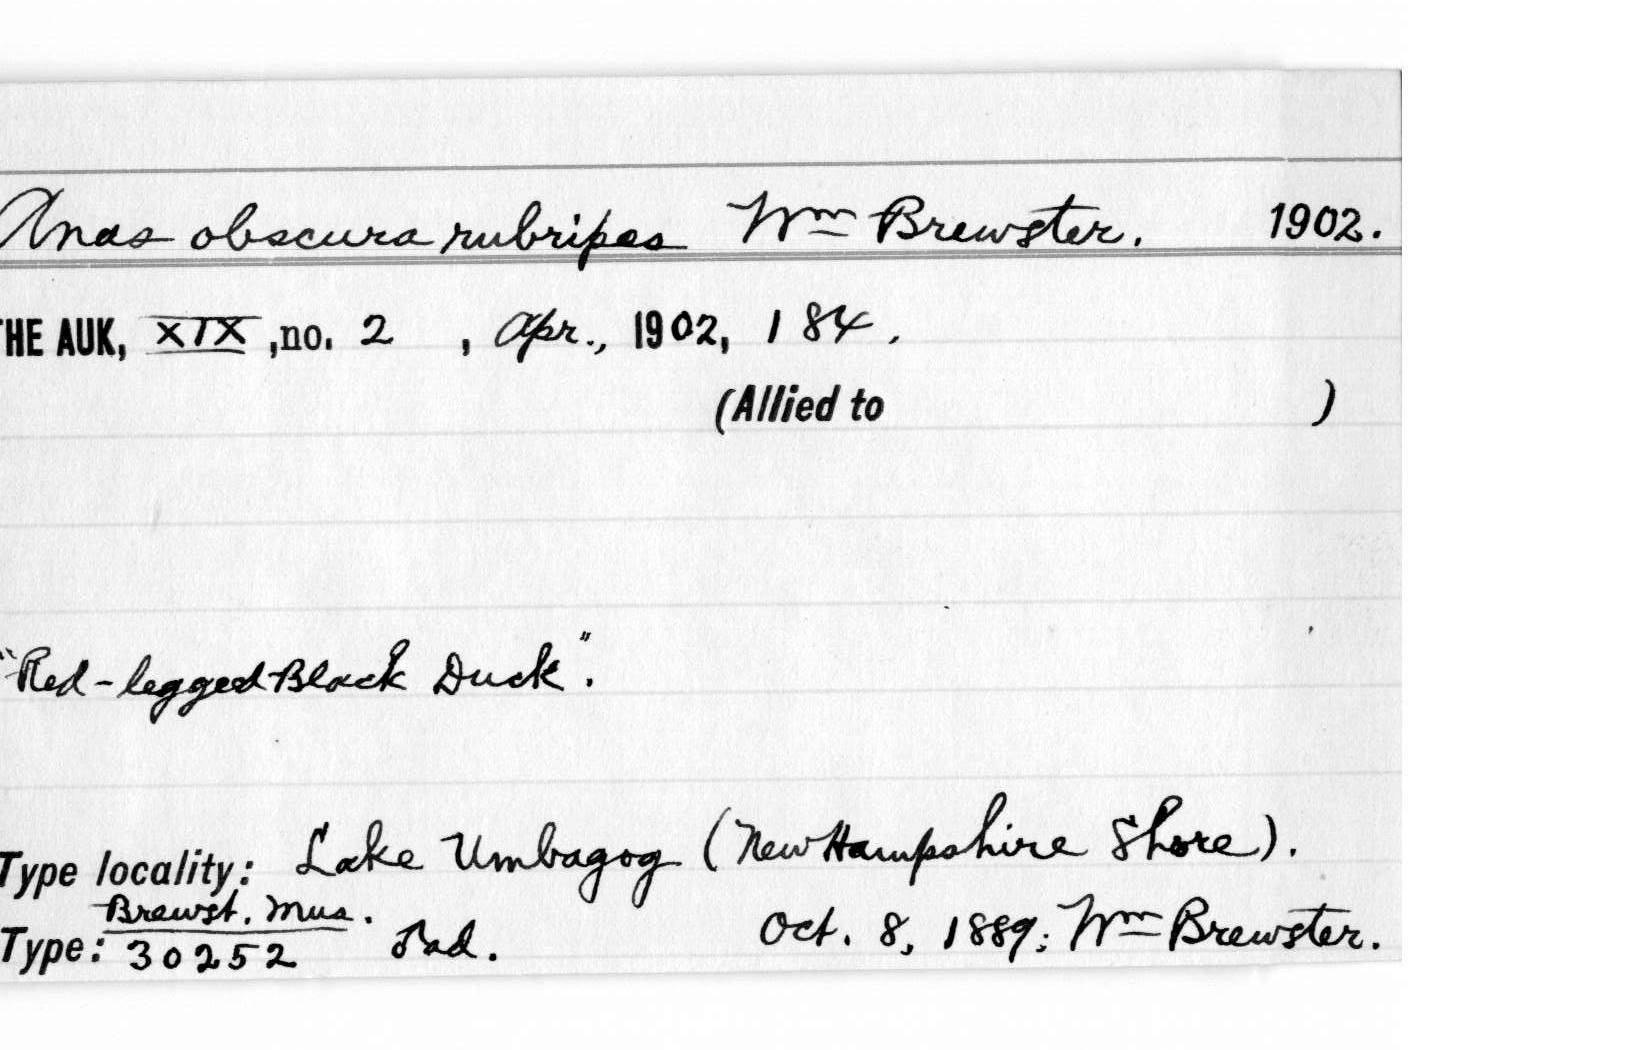 Anas obscura rubripes Wm Brewster. 1902.
THE AUK, XIX, no. 2, Apr., 1902, 184.
(Allied to )
"Red-legged Black Duck".
Type locality: Lake Umbagog (New Hampshire Shore).
Brewst. Mus.
Type: 30252 ad. Oct. 8, 1889; Wm Brewster.